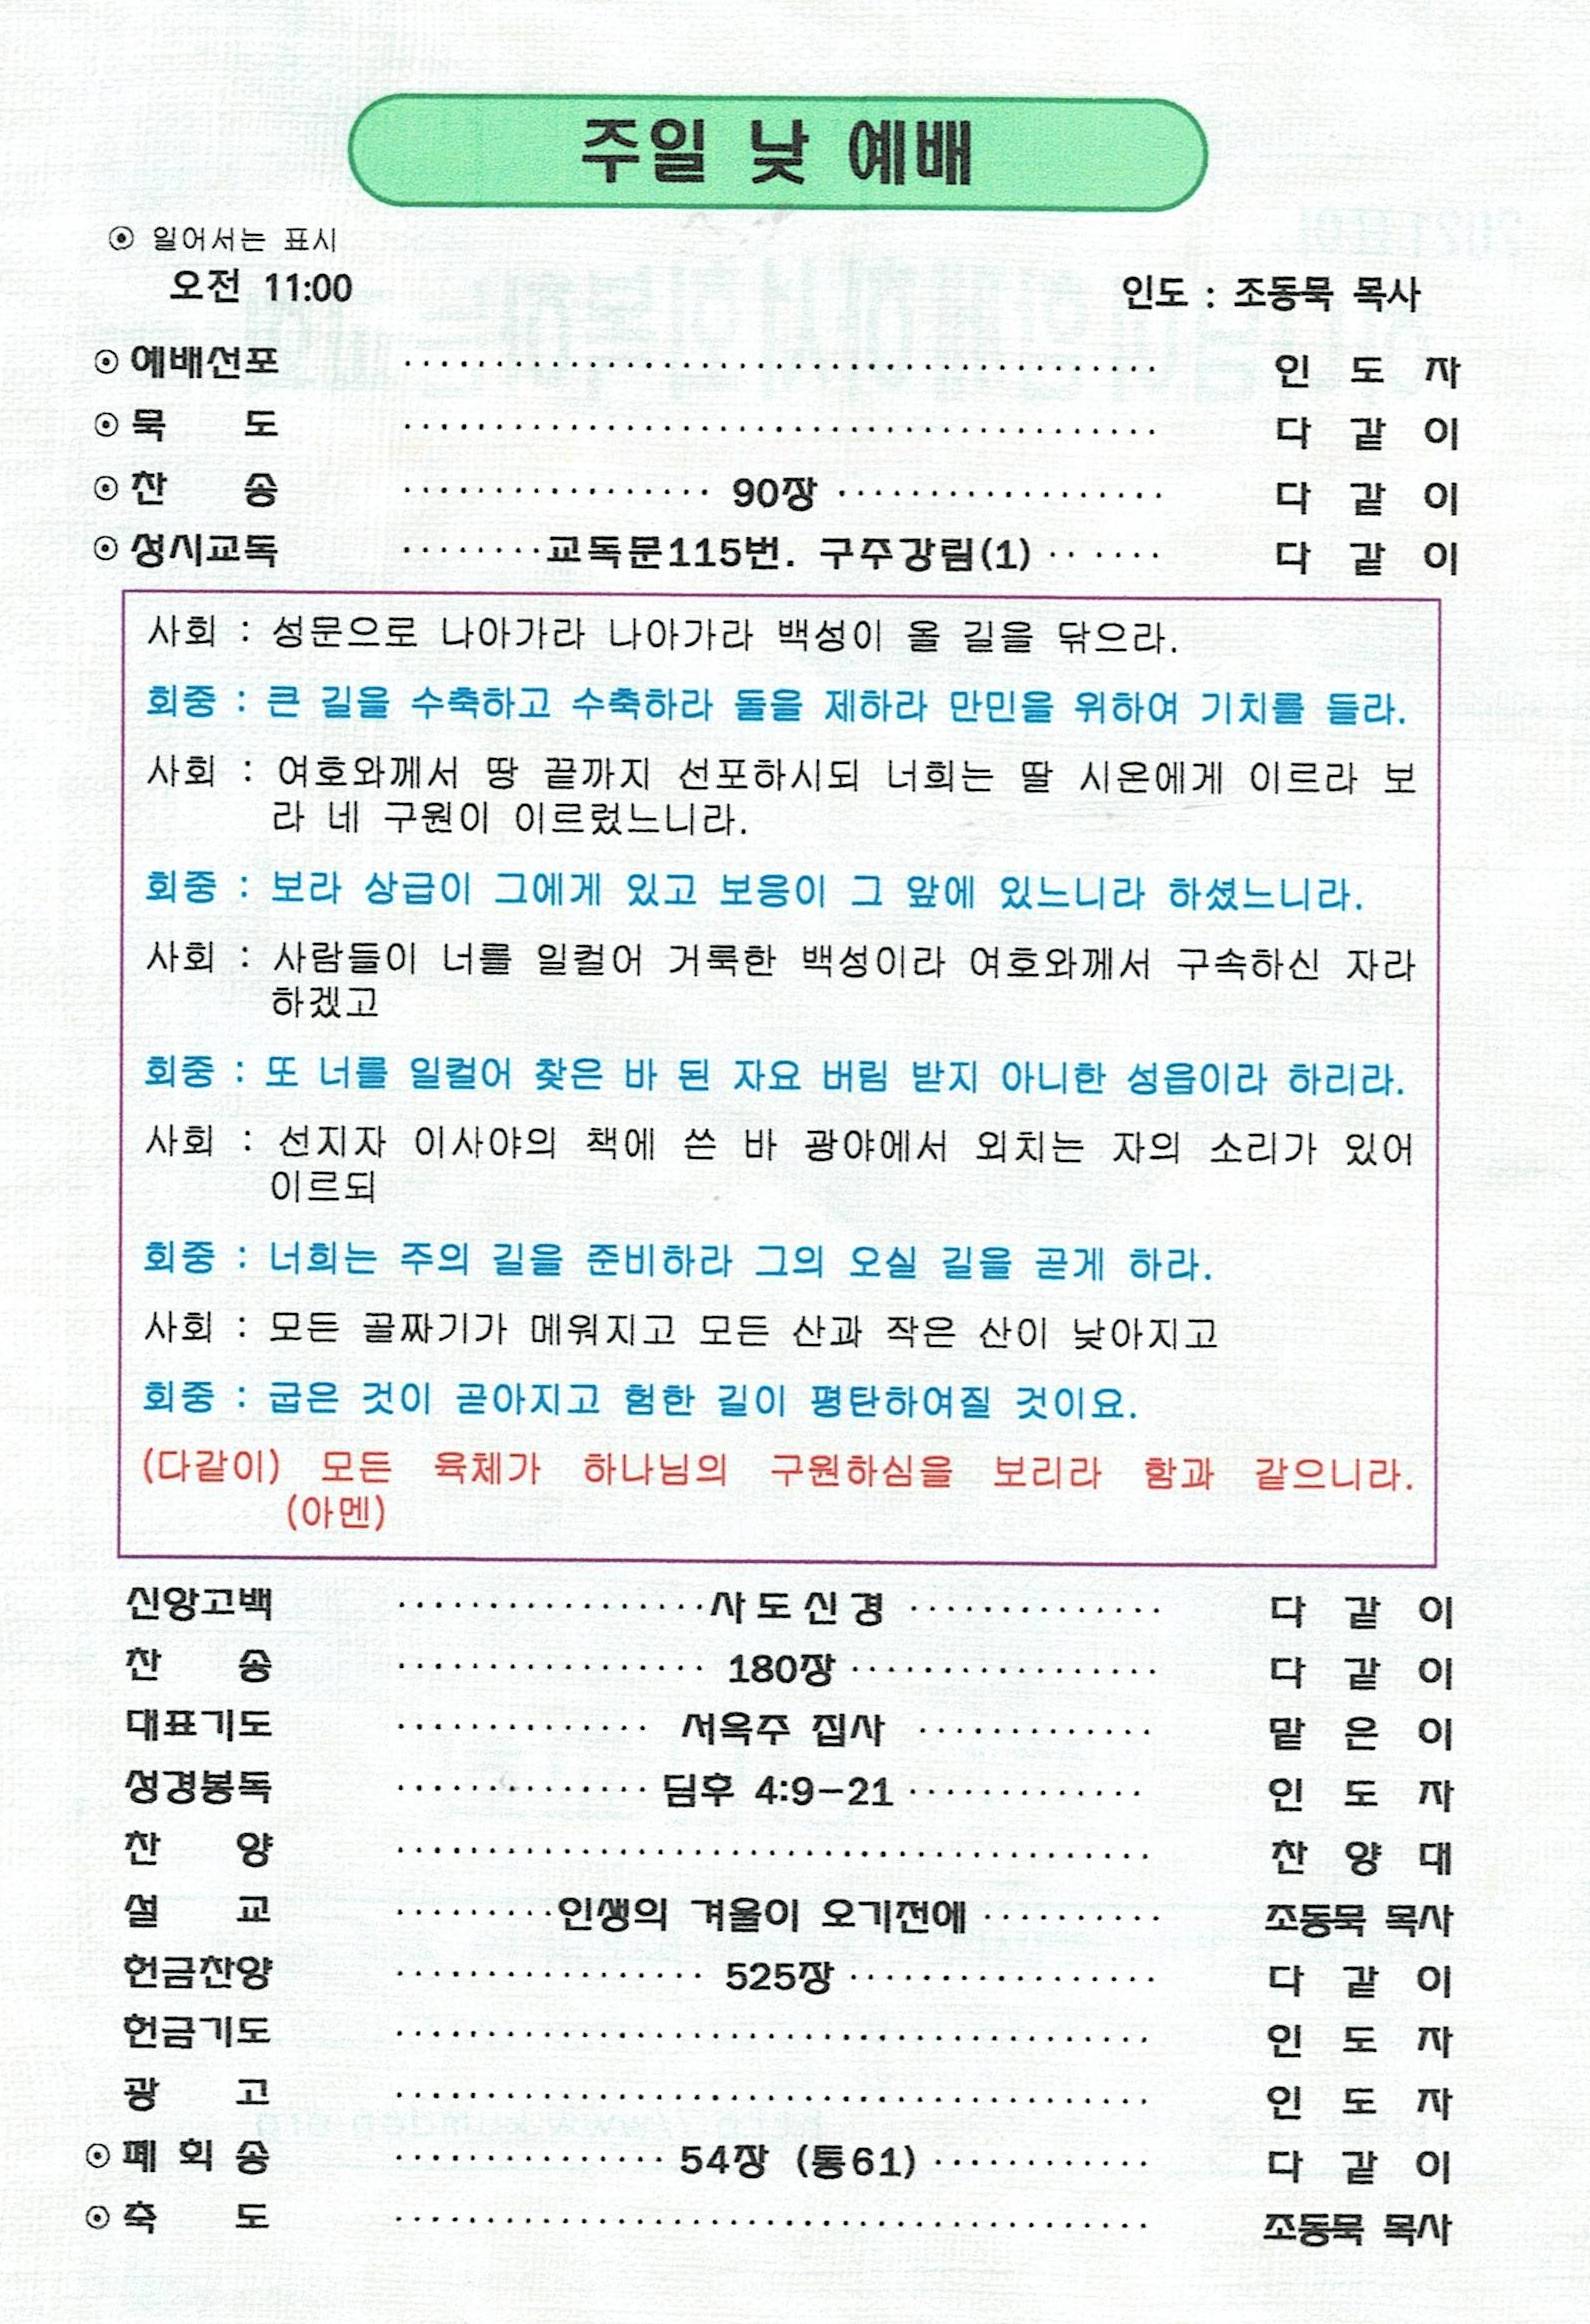 주일 낮 예배
⊙ 일어서는 표시
오전 11:00 인도 : 조동묵 목사
⊙ 예배선포 ········································· 인 도 자
⊙ 묵 도 ········································· 다 같 이
⊙ 찬 송 ················· 90장 ·················· 다 같 이
⊙ 성시교독 ········교독문115번. 구주강림(1) ······ 다 같 이
사회 : 성문으로 나아가라 나아가라 백성이 올 길을 닦으라.
회중 : 큰 길을 수축하고 수축하라 돌을 제하라 만민을 위하여 기치를 들라.
사회 : 여호와께서 땅 끝까지 선포하시되 너희는 딸 시온에게 이르라 보
라 네 구원이 이르렀느니라.
회중 : 보라 상급이 그에게 있고 보응이 그 앞에 있느니라 하셨느니라.
사회 : 사람들이 너를 일컬어 거룩한 백성이라 여호와께서 구속하신 자라
하겠고
회중 : 또 너를 일컬어 찾은 바 된 자요 버림 받지 아니한 성읍이라 하리라.
사회 : 선지자 이사야의 책에 쓴 바 광야에서 외치는 자의 소리가 있어
이르되
회중 : 너희는 주의 길을 준비하라 그의 오실 길을 곧게 하라.
사회 : 모든 골짜기가 메워지고 모든 산과 작은 산이 낮아지고
회중 : 굽은 것이 곧아지고 험한 길이 평탄하여질 것이요.
(다같이) 모든 육체가 하나님의 구원하심을 보리라 함과 같으니라.
(아멘)
신앙고백 ·················사도신경 ·············· 다 같 이
찬 송 ················· 180장 ················· 다 같 이
대표기도 ·············· 서옥주 집사 ············· 맡 은 이
성경봉독 ·············· 딤후 4:9-21 ············· 인 도 자
찬 양 ········································· 찬 양 대
설 교 ·········인생의 겨울이 오기전에 ·········· 조동묵 목사
헌금찬양 ················· 525장 ················· 다 같 이
헌금기도 ········································· 인 도 자
광 고 ········································· 인 도 자
⊙ 폐 회 송 ··············· 54장 (통61) ············ 다 같 이
⊙ 축 도 ········································· 조동묵 목사